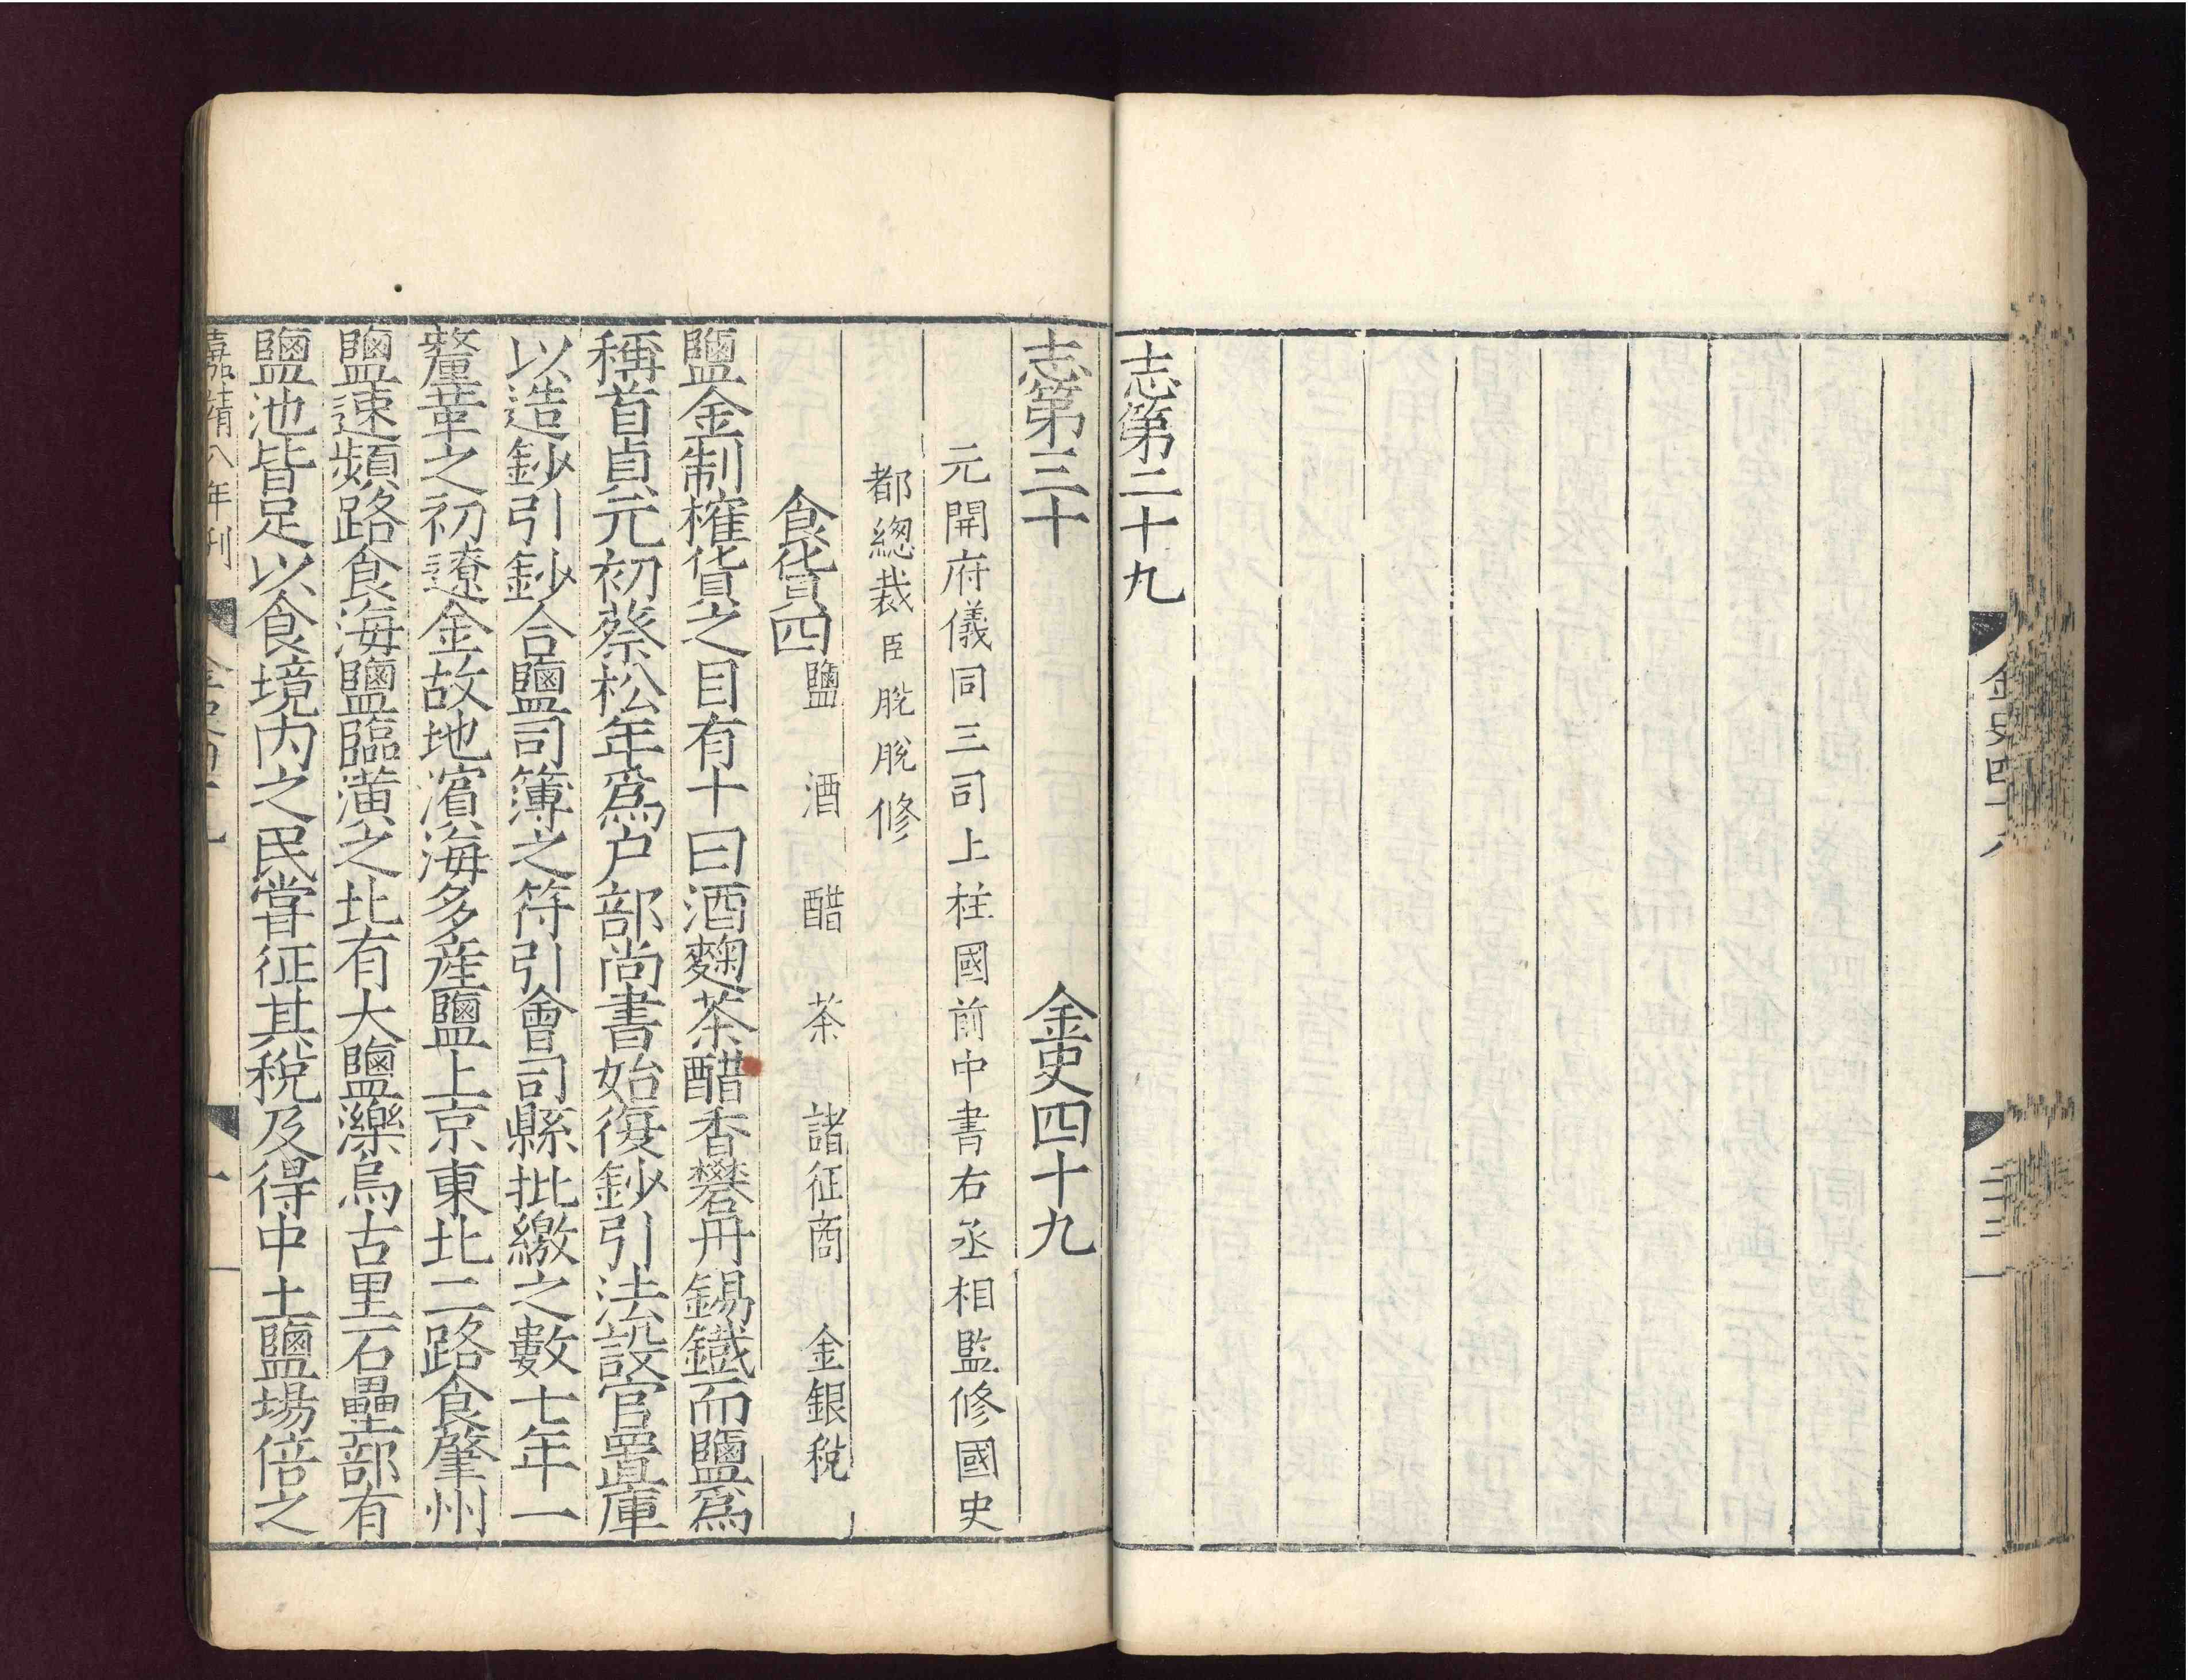 金史四十八
二十二
志第二十九
志第三十 金史四十九
元開府儀同三司上柱國前中書右丞相監修國史
都總裁臣脫脫修
食貨四 鹽 酒 醋 茶 諸征商 金銀稅
鹽金制榷貨之目有十曰酒麴茶醋香礬丹錫鐵而鹽爲
稱首貞元初蔡松年爲户部尚書始復鈔引法設官置庫
以造鈔引鈔合鹽司簿之符引會司縣批繳之數七年一
釐革之初遼金故地濱海多産鹽上京東北二路食肇州
鹽速頻路食海鹽臨潢之北有大鹽濼烏古里石壘部有
鹽池皆足以食境内之民嘗征其稅及得中土鹽場倍之
嘉靖八年刊